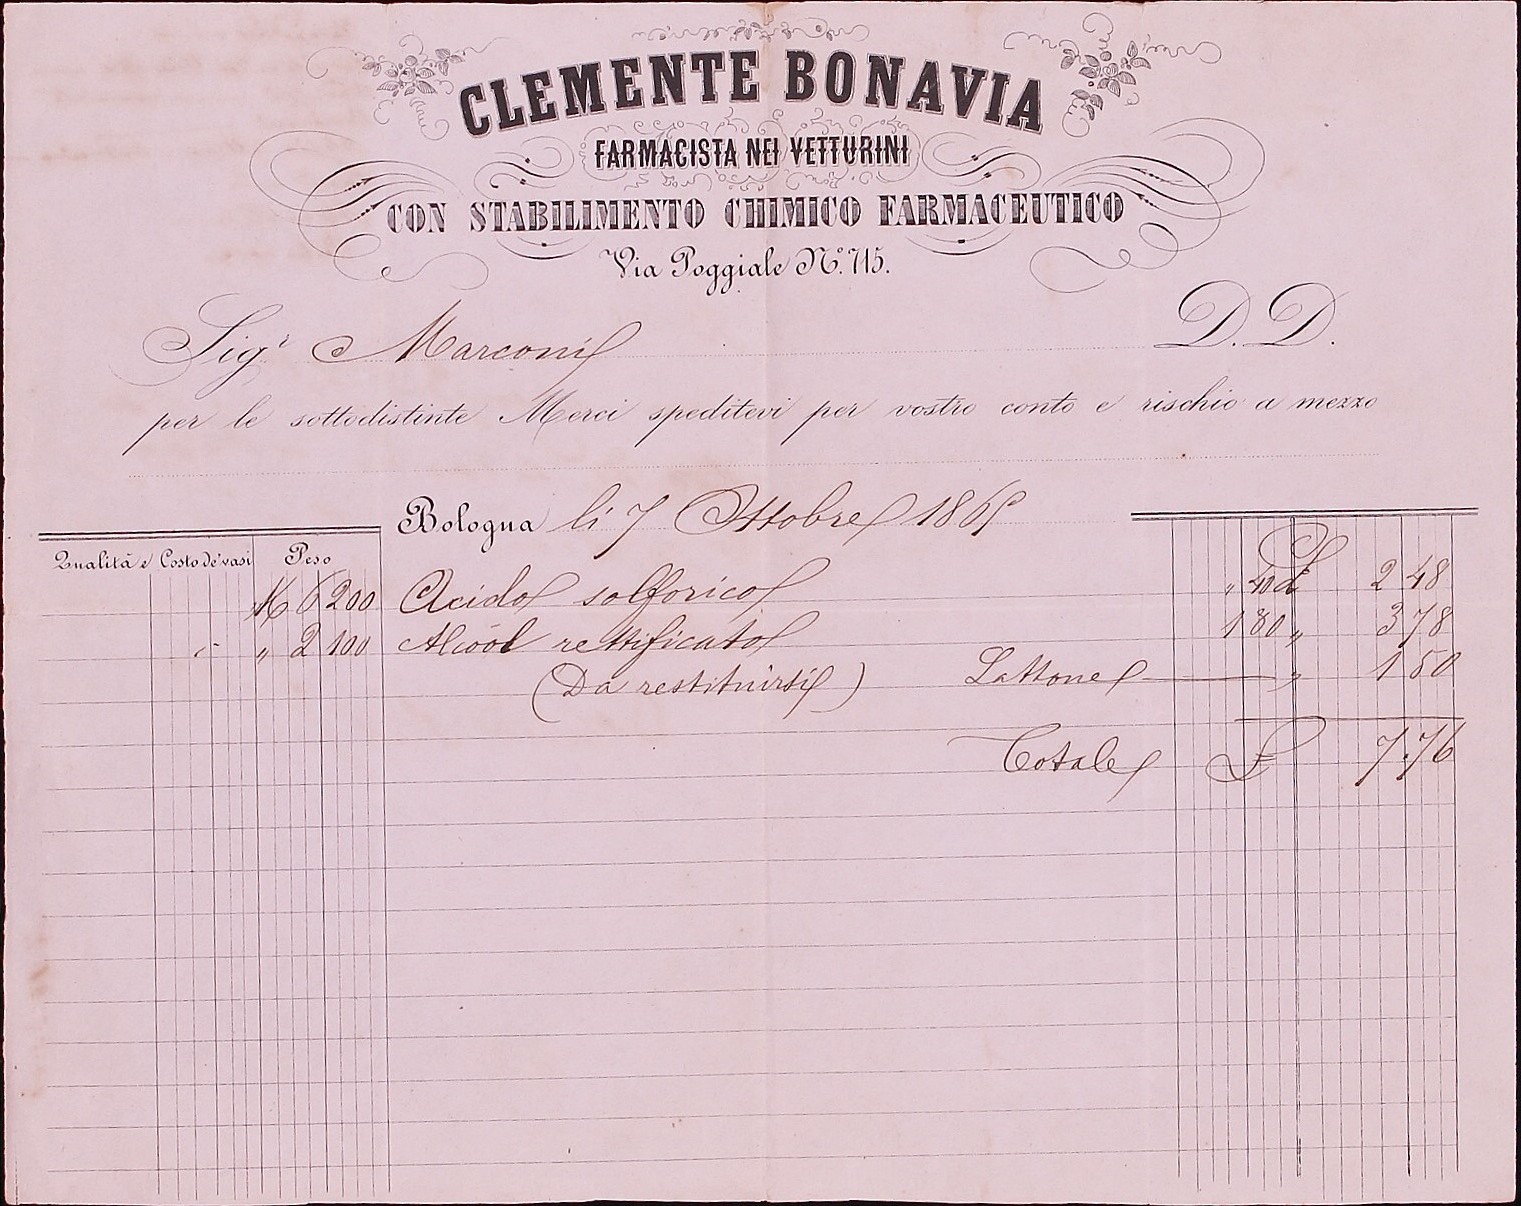 CLEMENTE BONAVIA
FARMACISTA NEI VETTURINI
CON STABILIMENTO CHIMICO FARMACEUTICO
Via Poggiale N.° 715.
Sigr Marconi D. D.
per le sottodistinte Merci speditevi per vostro conto e rischio a mezzo
Bologna li 7 Ottobre 186
Qualità e Costo de' vasi Peso
K 6 200 Acido solforico " 40 £ 2 48
" 2 100 Alcool rettificato 1 80 " 3 78
(Da restituirsi) Lattone " 1 50
Totale £ 7.76